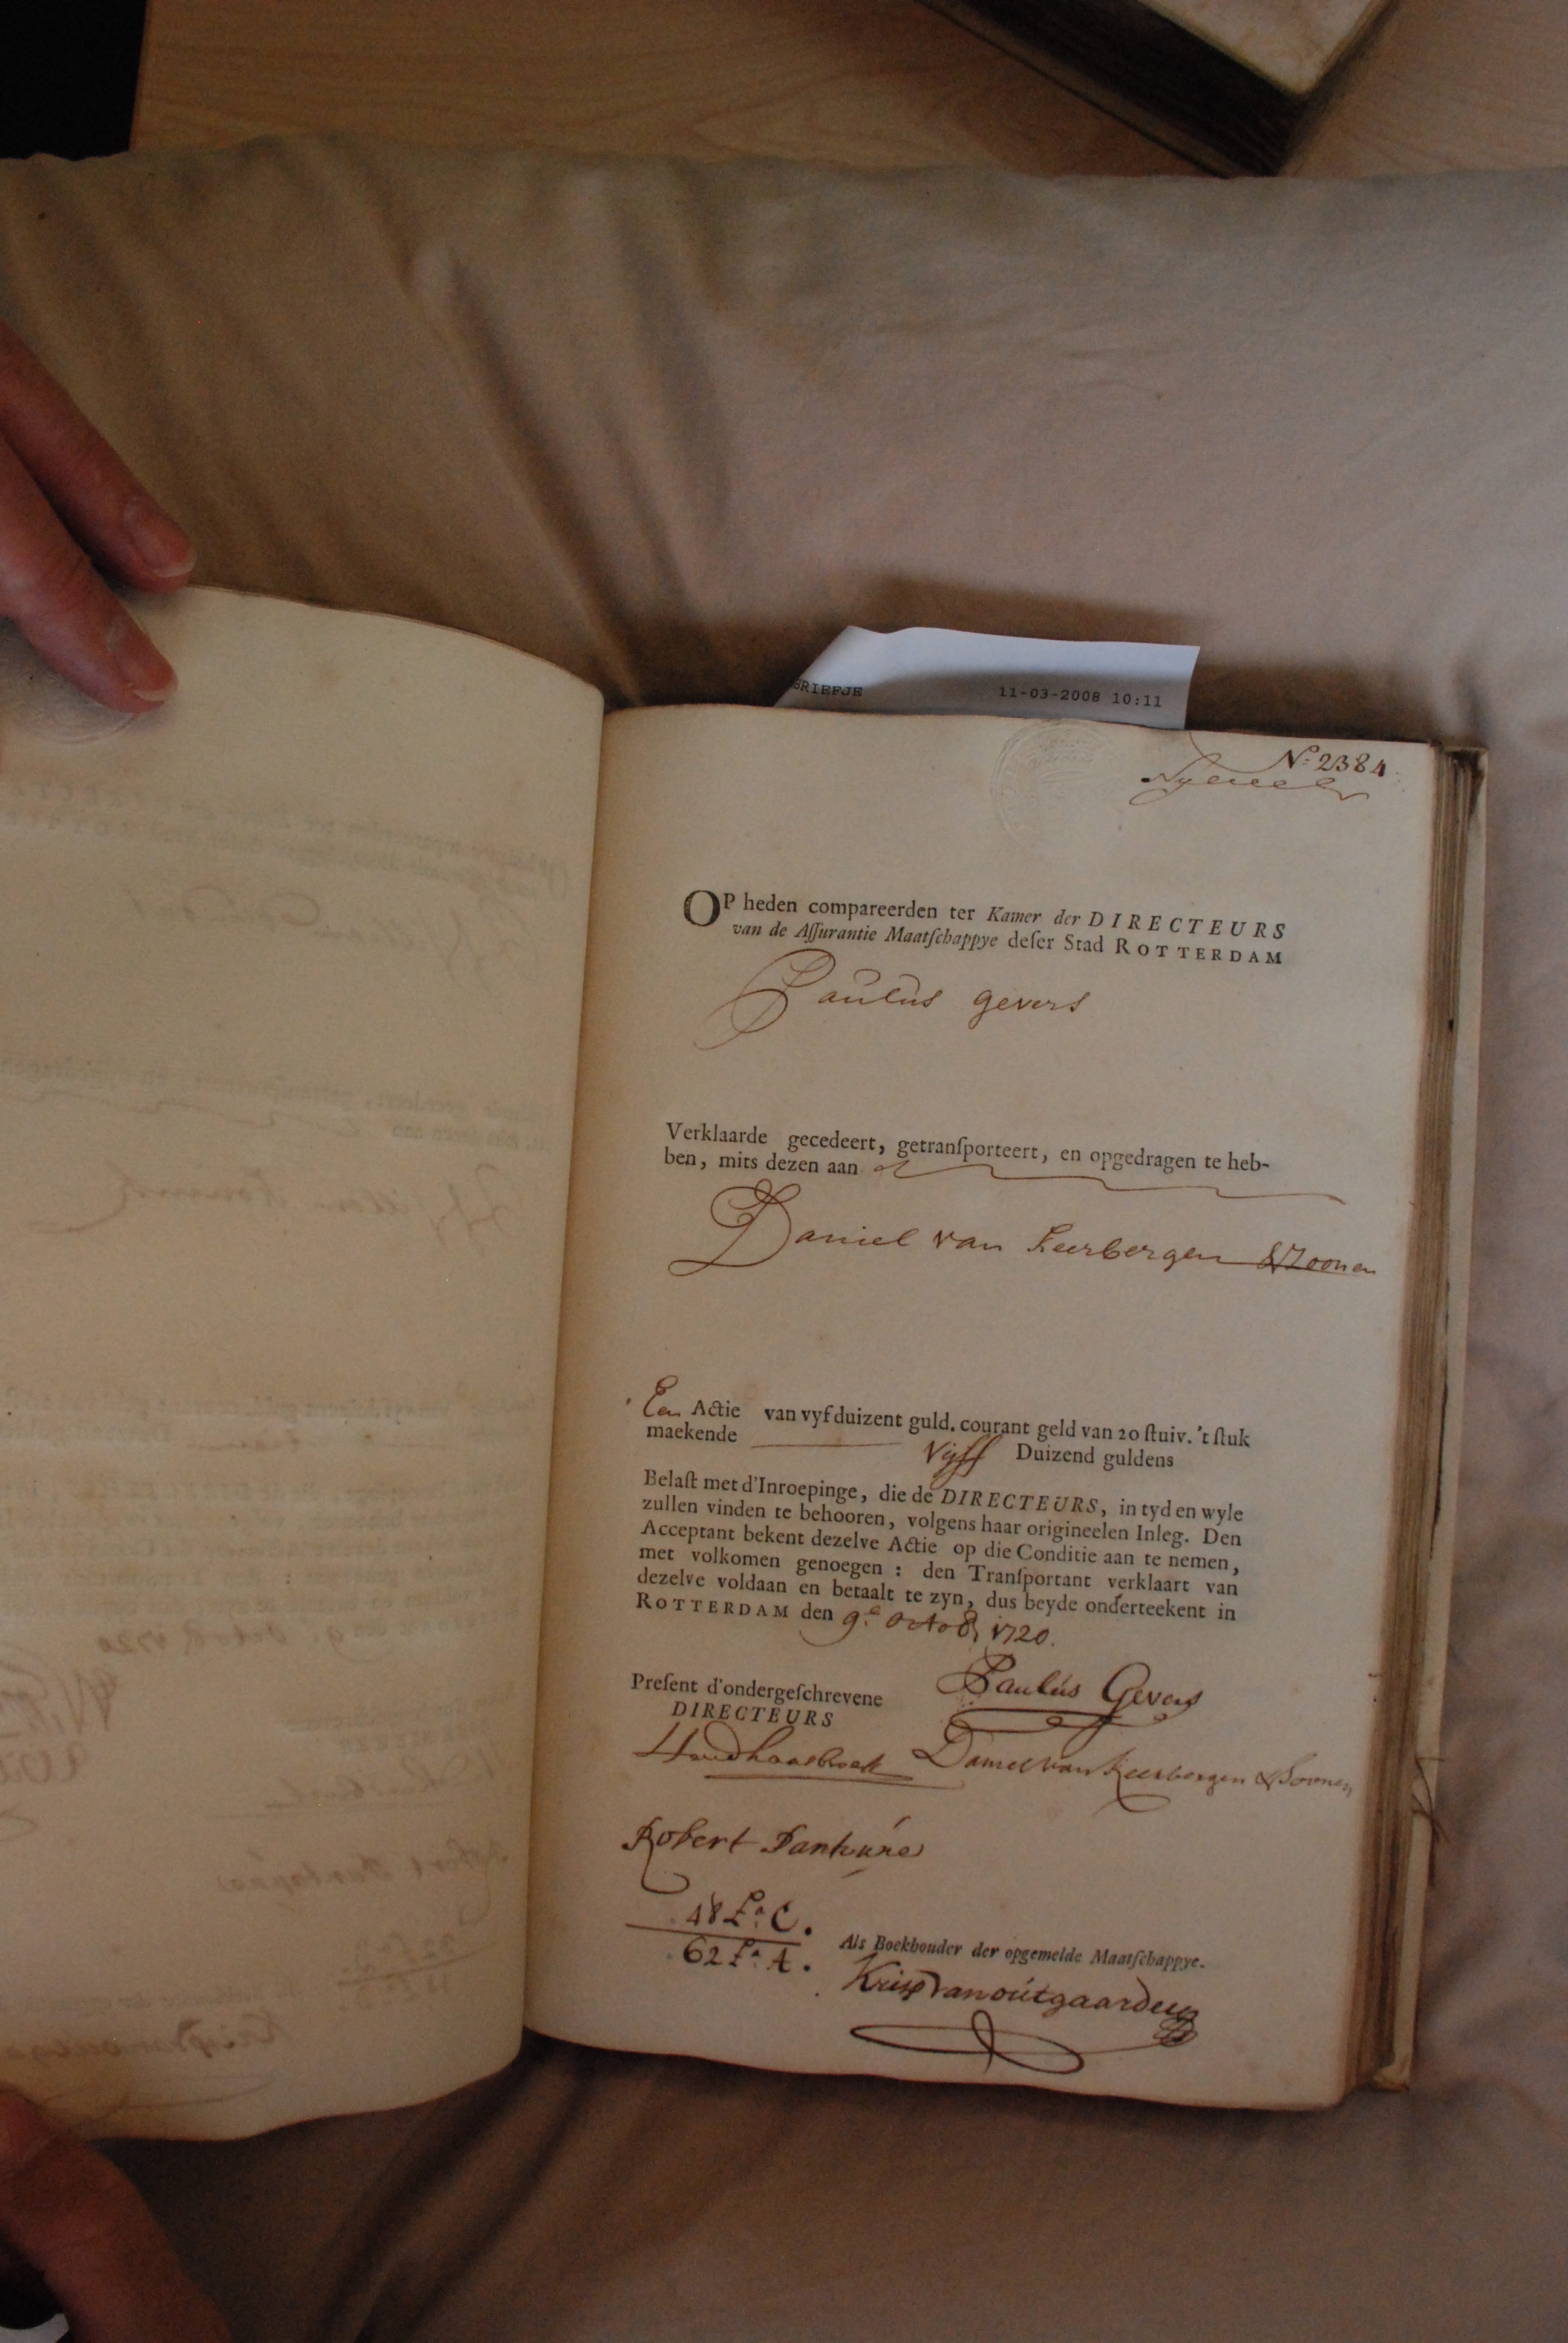 BRIEFJE 11-03-2008 10:11
No: 2384
OP heden compareerden ter Kamer der DIRECTEURS
van de Aſſurantie Maatſchappye deſer Stad ROTTERDAM
Paulus Gevers
Verklaarde gecedeert, getranſporteert, en opgedragen te heb-
ben, mits dezen aan
Daniel van Keerbergen & Zoonen
Een Actie van vyf duizent guld. courant geld van 20 ſtuiv. 't ſtuk
maekende Vijff Duizend guldens
Belaſt met d'Inroepinge, die de DIRECTEURS, in tyd en wyle
zullen vinden te behooren, volgens haar origineelen Inleg. Den
Acceptant bekent dezelve Actie op die Conditie aan te nemen,
met volkomen genoegen : den Tranſportant verklaart van
dezelve voldaan en betaalt te zyn, dus beyde onderteekent in
ROTTERDAM den 9e Octob 1720.
Preſent d'ondergeſchrevene Paulus Gevers
DIRECTEURS
Daniel van Keerbergen & Soonen
Robert
48 La C.
62 La A. Als Boekhouder der opgemelde Maatſchappye.
Krisp van outgaarden